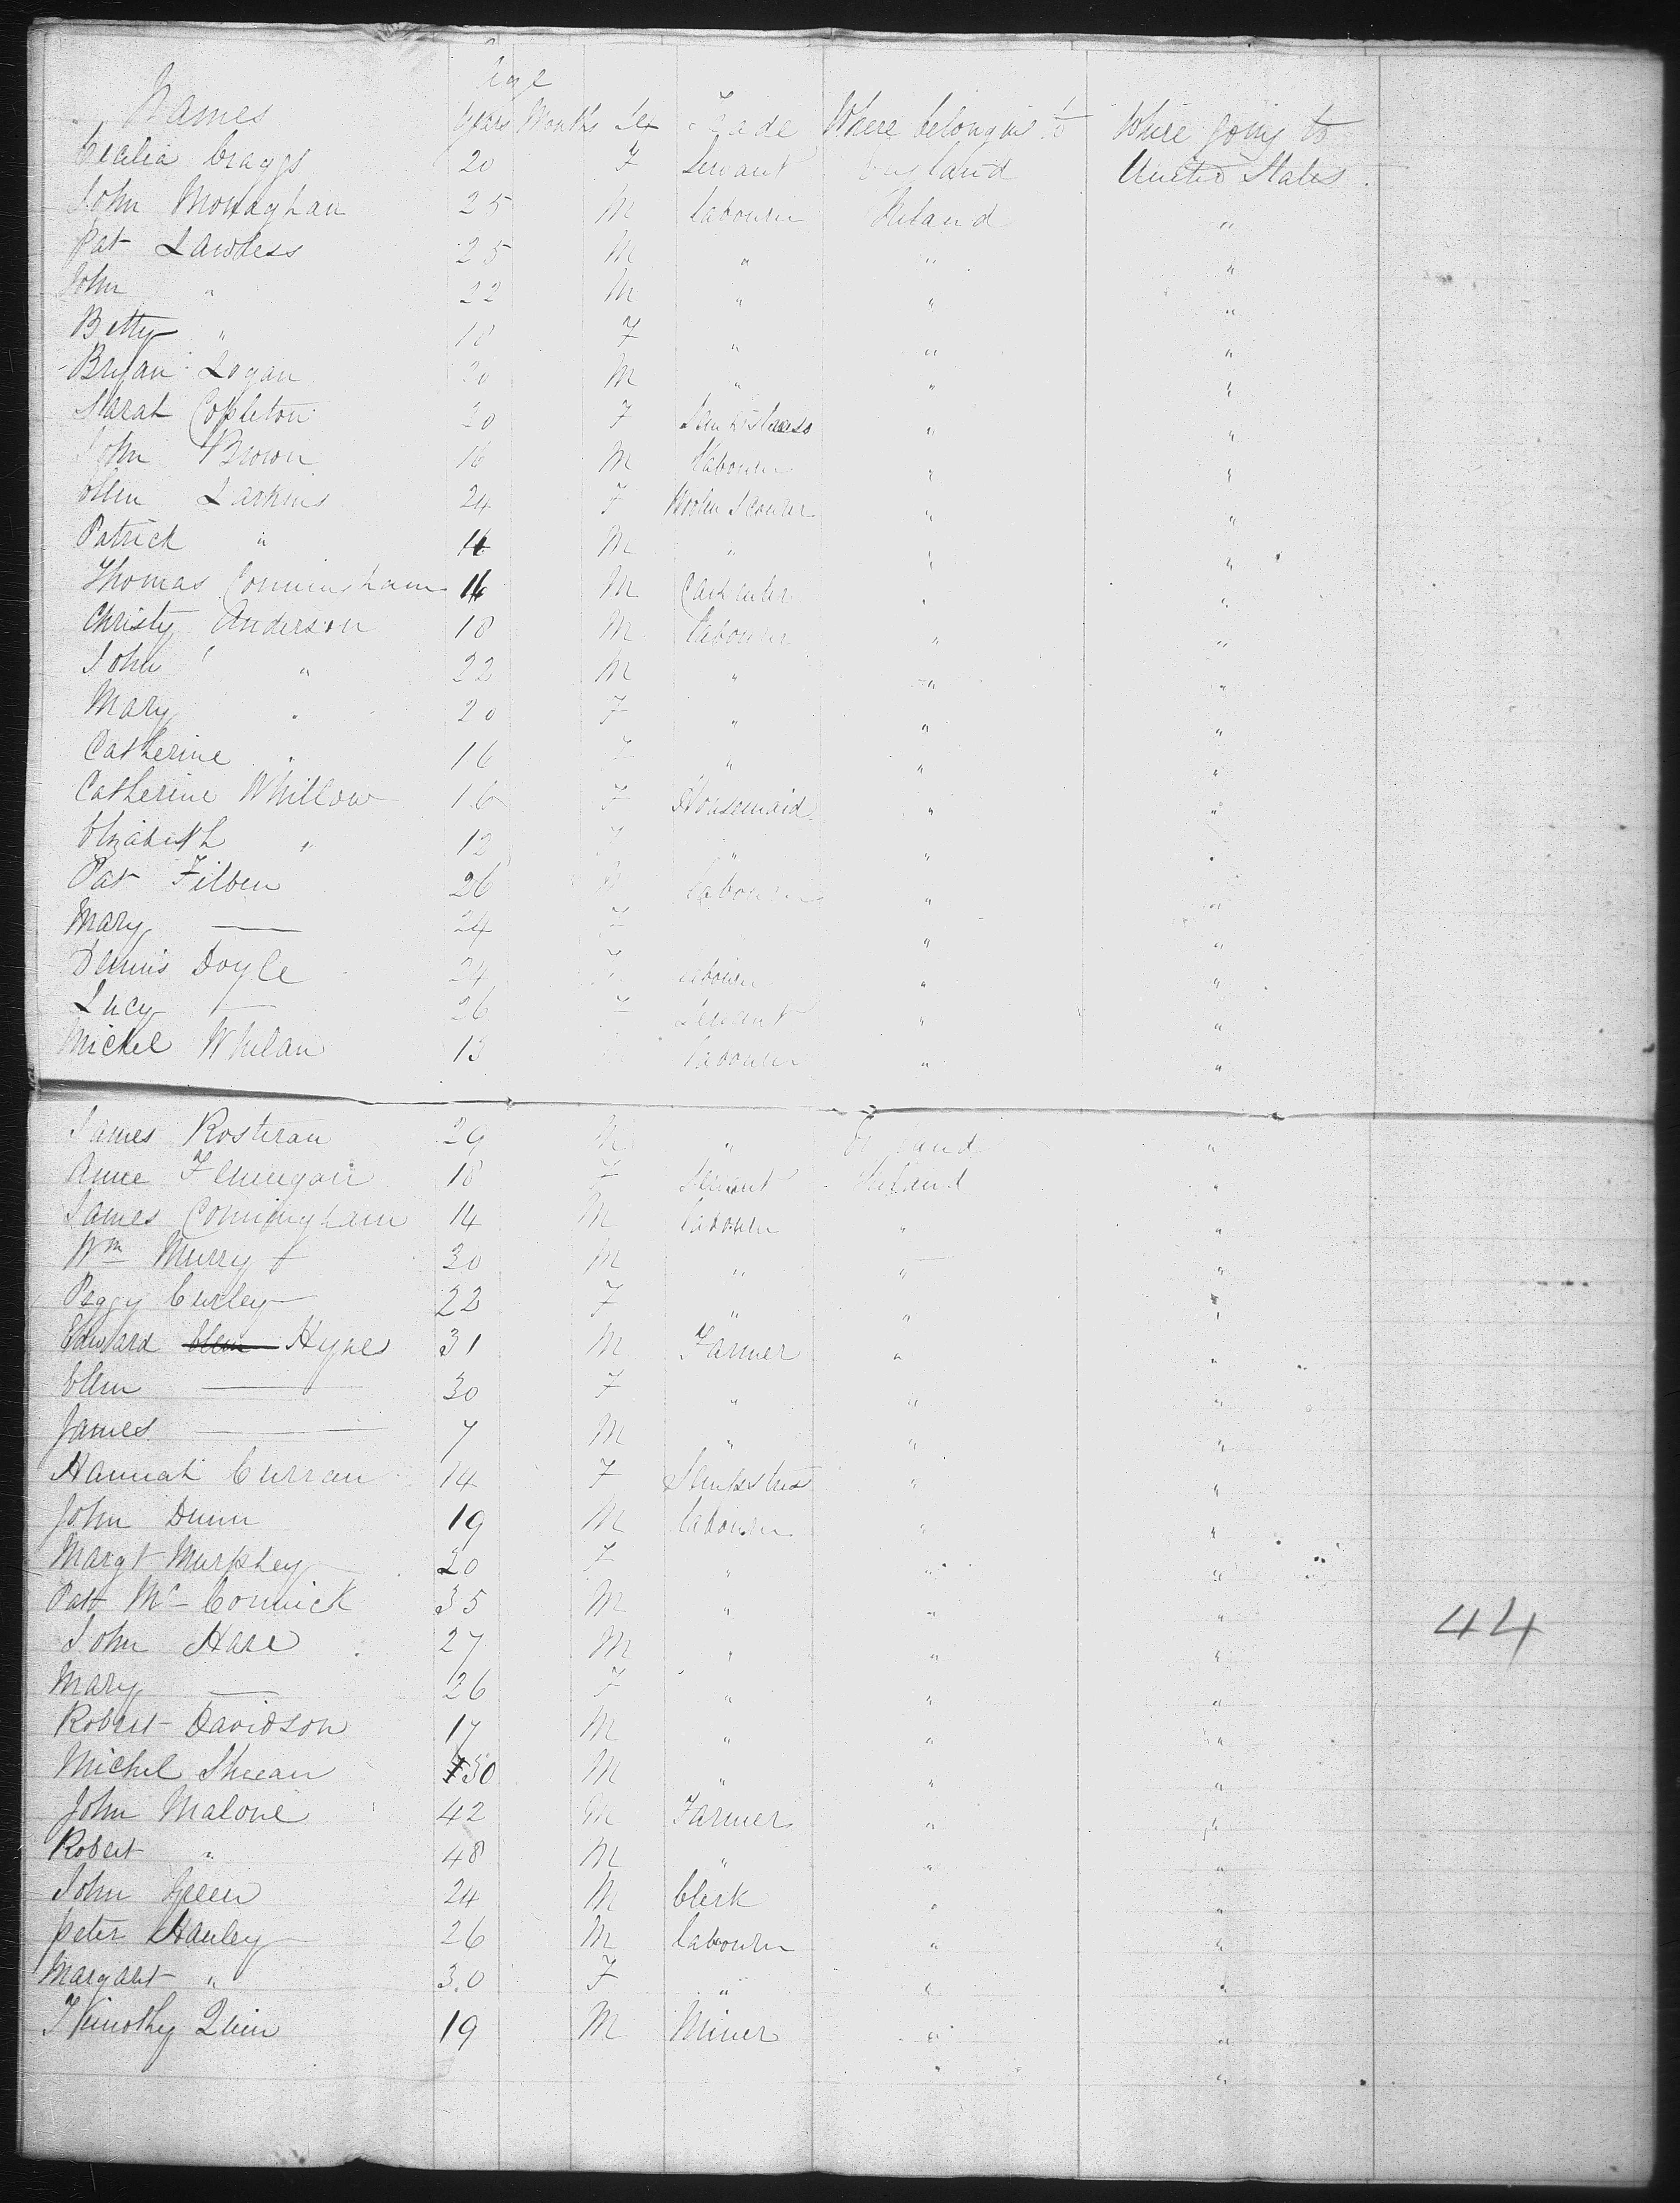 Age
Names Years Months Sex Trade Where belonging to Where going to
Cecilia Craggs 20 F Servant England United States
John Monaghan 25 M labourer Ireland "
Pat Lawless 25 M " " "
John " 22 M " " "
Betty " 18 F " " "
Bryan Logan 30 M " " "
Sarah Copleton 20 F " "
John Brown 16 M labourer " "
Ellen Larkins 24 F Woolen Scourer " "
Patrick " M " " "
Thomas Conningham 16 M Carpenter " "
Christy Anderson 18 M labourer " "
John " 22 M " " "
Mary " 20 F " " "
Catherine " 16 F " " "
Catherine Whillow 16 F Housemaid " "
Elizabeth " 12 " " "
Pat Filben 26 M labourer " "
Mary — 24 F " "
Dennis Doyle 24 labourer " "
Lucy — 26 F Servant " "
Michel Whelan 13 labourer " "
James Rosteran 29 M " England "
Anne Flinnigan 18 F Servant Ireland "
James Conningham 14 M labourer " "
Wm Murry 30 M " " "
Peggy Curley 22 F " " "
Edward Ellen Hynes 31 M Farmer " "
Ellen — 30 F " " "
James — 7 M " " "
Hannah Curran 14 F " "
John Dunn 19 M labourer " "
Margt Murphey 20 F " " "
Patt Mc Cormick 35 M " " "
John Hare 27 M " " "
Mary — 26 F " " "
Robert Davidson 17 M " " "
Michel Sheean 30 M " " "
John Malone 42 M Farmer " "
Robert " 48 M " " "
John Green 24 M Clerk " "
peter Hanley 26 M labourer " "
Margaret " 30 F " " "
Timothy Quin 19 M Miner " "
" "
44